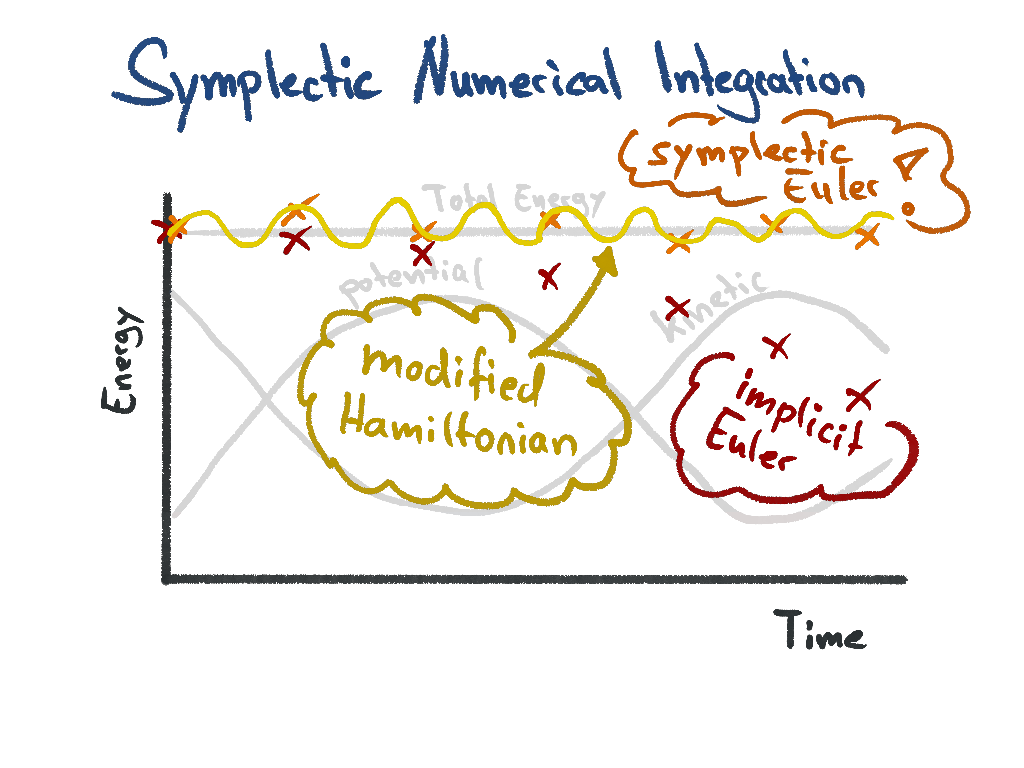 Symplectic Numerical Integration
symplectic
Euler !
Total Energy
potential
kinetic
Energy
modified
Hamiltonian
implicit
Euler
Time